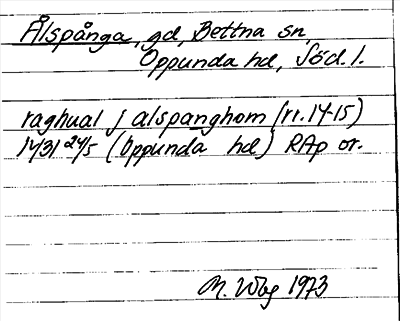 Ålspånga, gd, Bettna sn,
Oppunda hd, Söd. l.
raghual j alspanghom (rr. 14-15)
1431 24/5 (Oppunda hd) RAp or.
M. Wbg 1973